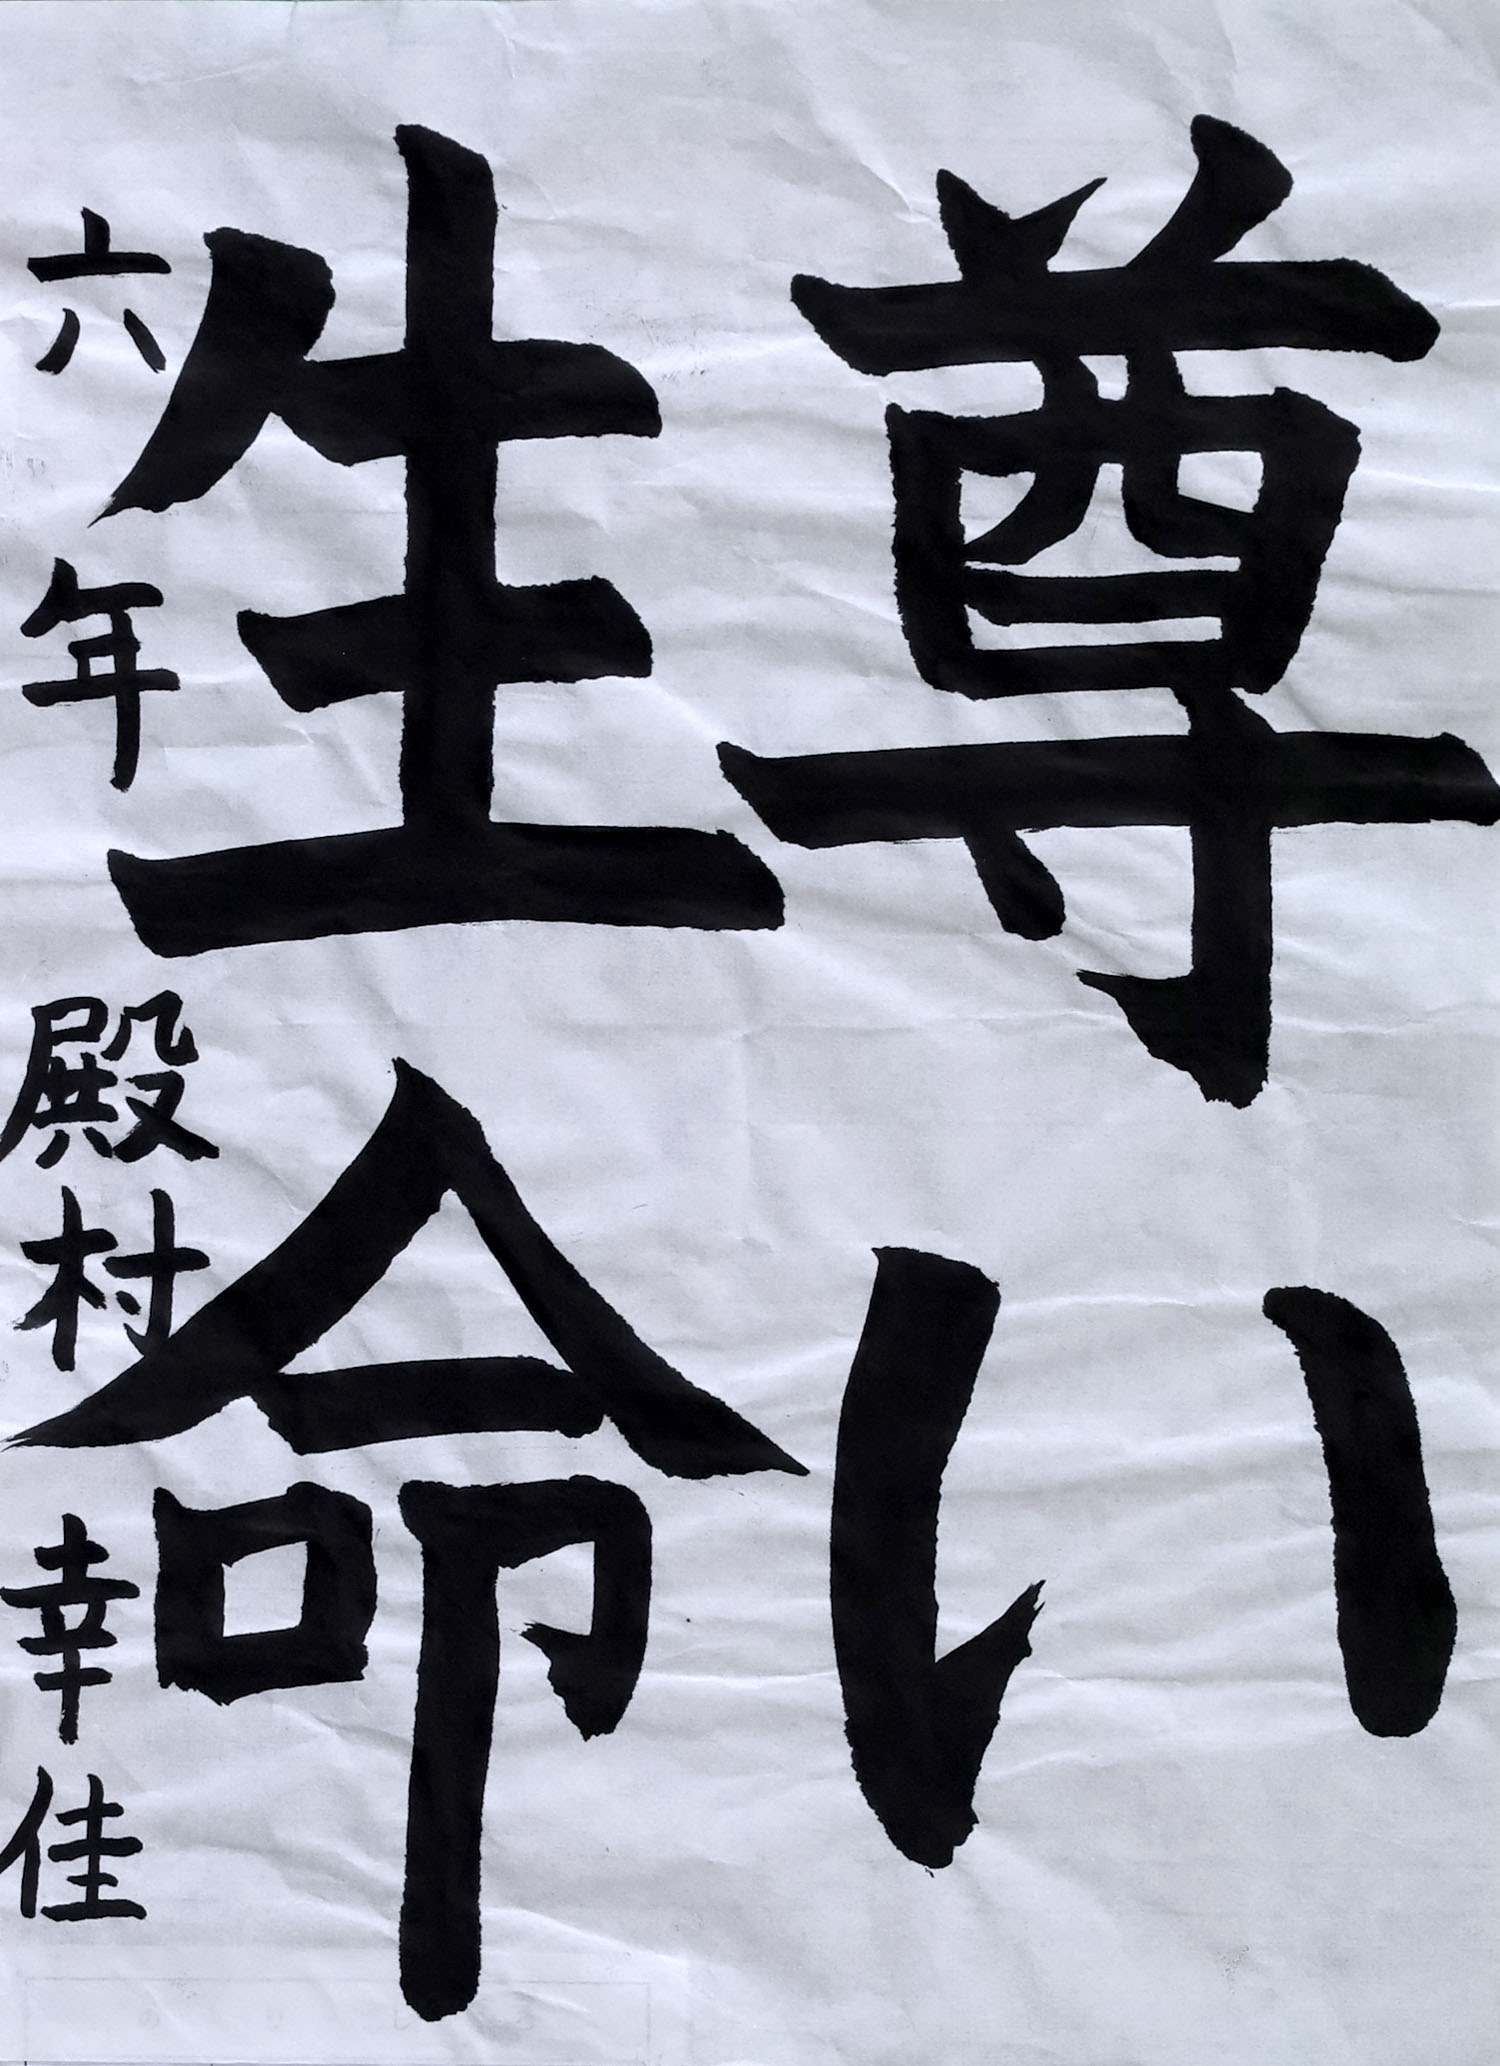 尊い
生命
六年 殿村 幸佳